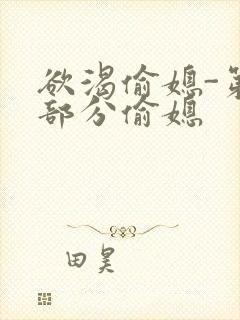 欲渴偷媳-第
部分偷媳
田昊